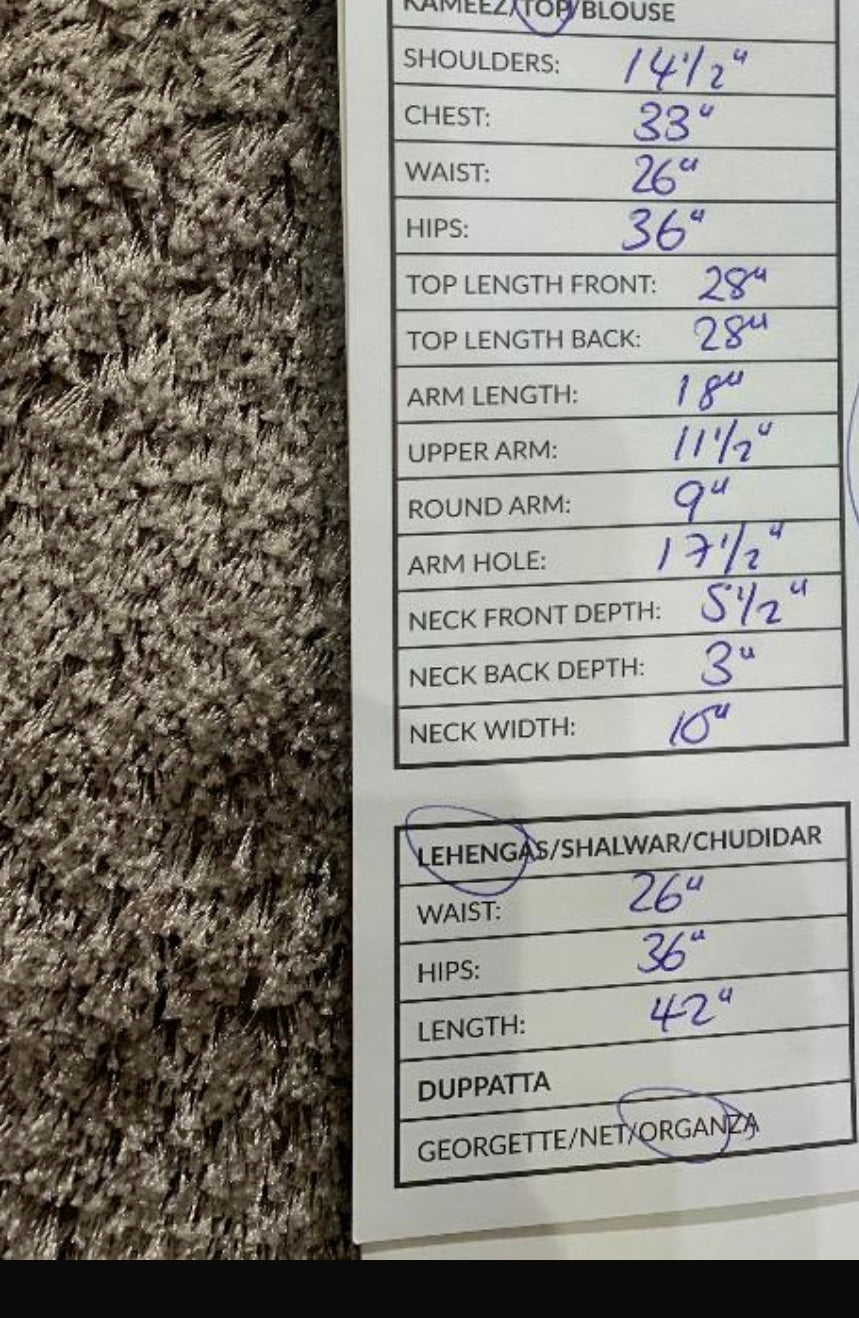 KAMEEZ/TOP/BLOUSE
SHOULDERS: 14 1/2"
CHEST: 33"
WAIST: 26"
HIPS: 36"
TOP LENGTH FRONT: 28"
TOP LENGTH BACK: 28"
ARM LENGTH: 18"
UPPER ARM: 11 1/2"
ROUND ARM: 9"
ARM HOLE: 17 1/2"
NECK FRONT DEPTH: 5 1/2"
NECK BACK DEPTH: 3"
NECK WIDTH: 10"
LEHENGAS/SHALWAR/CHUDIDAR
WAIST: 26"
HIPS: 36"
LENGTH: 42"
DUPPATTA
GEORGETTE/NET/ORGANZA